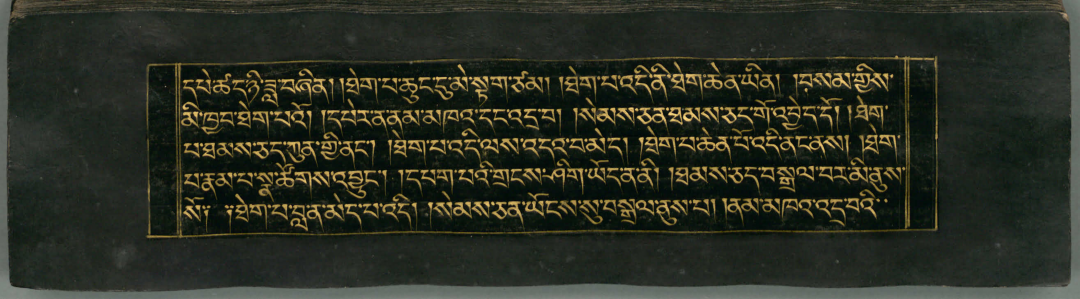 དཔེ་ཚད་ཉི་ཟླ་བཞིན། །ཐེག་པ་ཆུང་ངུ་མེ་སྟག་ཙམ། །ཐེག་པ་འདི་ནི་ཐེག་ཆེན་ཡིན། །བསམ་གྱིས་
མི་ཁྱབ་ཐེག་པའོ། །དཔེར་ན་ནམ་མཁའ་དང་འདྲ་བ། །སེམས་ཅན་ཐམས་ཅད་གོ་འབྱེད་དོ། །ཐེག་
པ་ཐམས་ཅད་ཀུན་གྱི་ནང་། །ཐེག་པ་འདི་ལས་འདའ་བ་མེད། །ཐེག་པ་ཆེན་པོ་འདི་ན་གནས། །ཐེག་
པ་རྣམ་པ་སྣ་ཚོགས་འབྱུང་། །དཔག་པའི་གྲངས་ཤིག་ཡོད་ན་ནི། །ཐམས་ཅད་བསྒྲལ་བར་མི་ནུས་
སོ༑ ༑ཐེག་པ་བླ་ན་མེད་པ་འདི། །སེམས་ཅན་ཡོངས་སུ་བསྒྲལ་ནུས་པ། །ནམ་མཁའ་འདྲ་བའི་